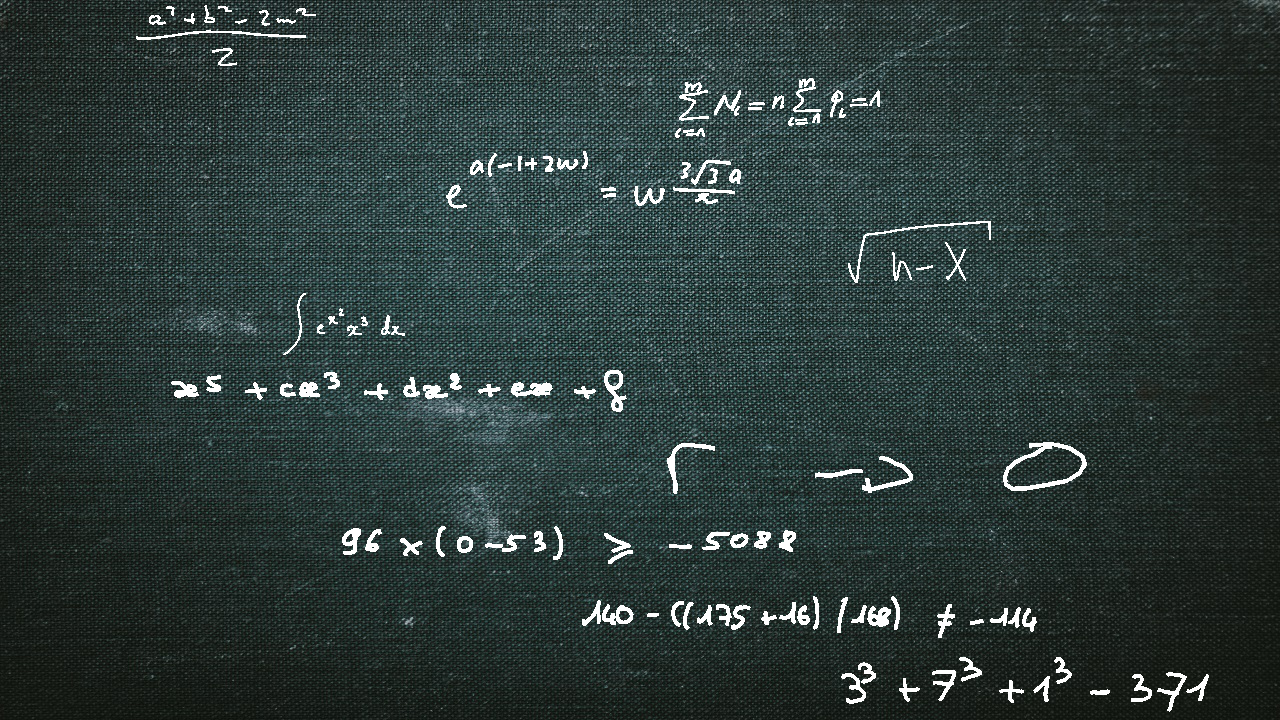 \frac{a^2+b^2-2m^2}{2}
\sum_{i=1}^{m} N_i = n \sum_{i=1}^{m} P_i = 1
e^{a(-1+2w)} = w \frac{3\sqrt{3}a}{x}
\sqrt{h-X}
\int e^{x^2} x^3 dx
x^5 + cx^3 + dx^2 + ex + f
r → 0
96 × (0-53) ⩾ -5088
140 - ((175+16)/168) ≠ -114
3^3 + 7^3 + 1^3 - 371